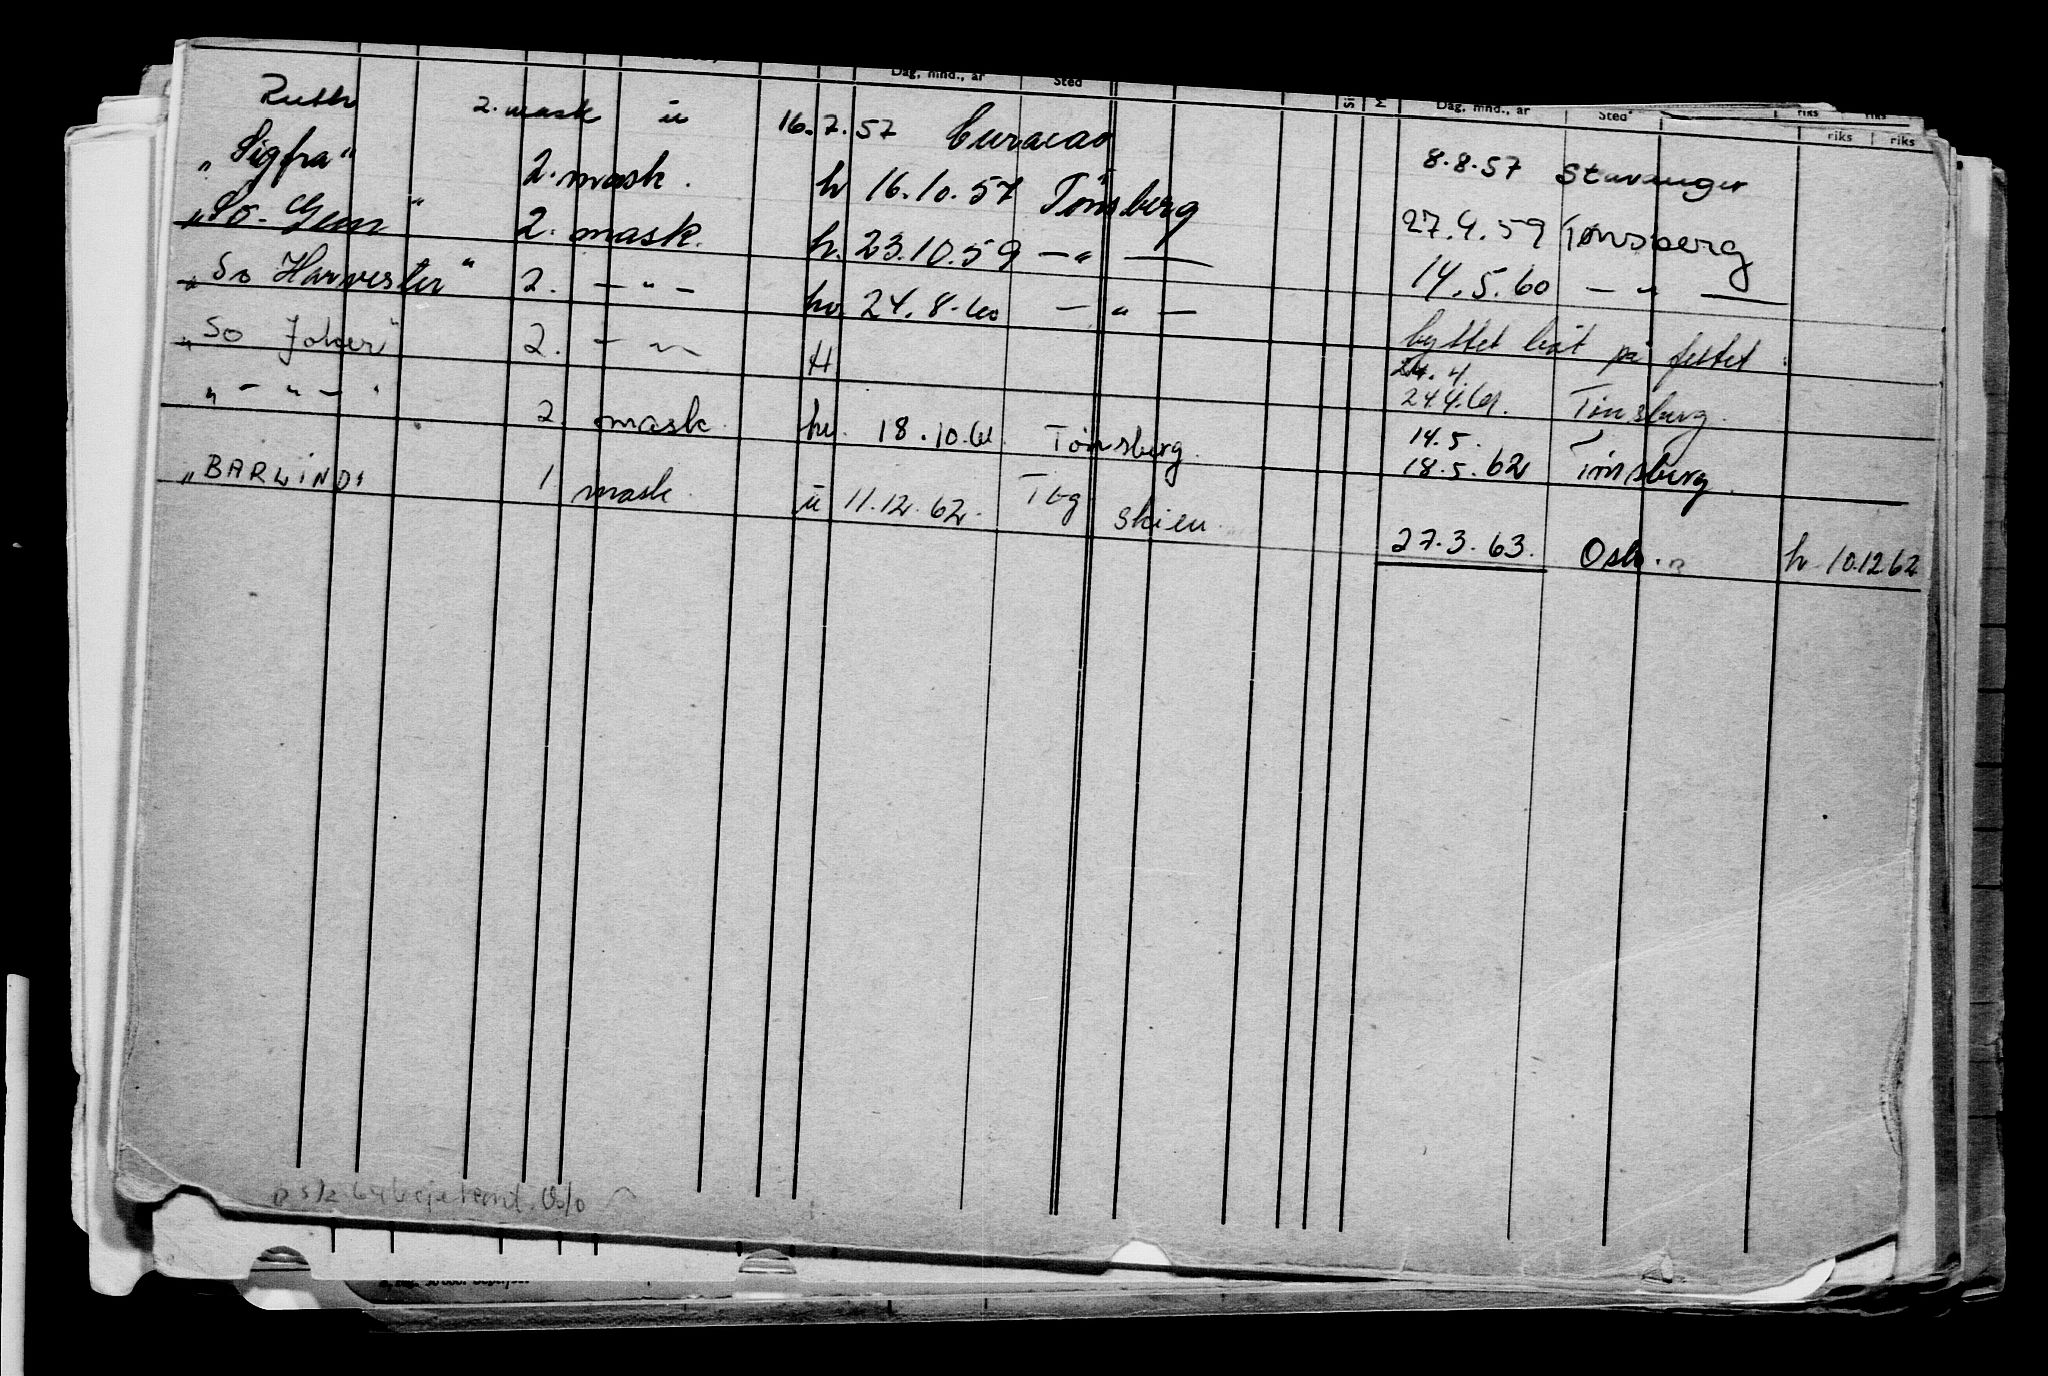 Dag, mnd., år Sted Dag, mnd., år Sted riks riks
riks riks
Ruth 2. mask u 16.7.57 Curacao 8.8.57 Stavanger
„Sigfra" 2. mask. h 16.10.57 Tønsberg 27.4.59 Tønsberg
„Sø. Gem" 2. mask. h. 23.10.59 — " — 14.5.60 — " —
„Sø Harvester" 2. — " — hv 24.8.60 — " — byttet båt på feltet
„Sø Joker" 2. — " — H 24.4. 24.4.61. Tønsberg.
" — " — " 2. mask. hv. 18.10.61. Tønsberg. 14.5. 18.5.62 Tønsberg.
„BARLIND" 1 mask. u 11.12.62. Tbg Skien. 27.3.63. Oslo. h 10.12.62
Oslo